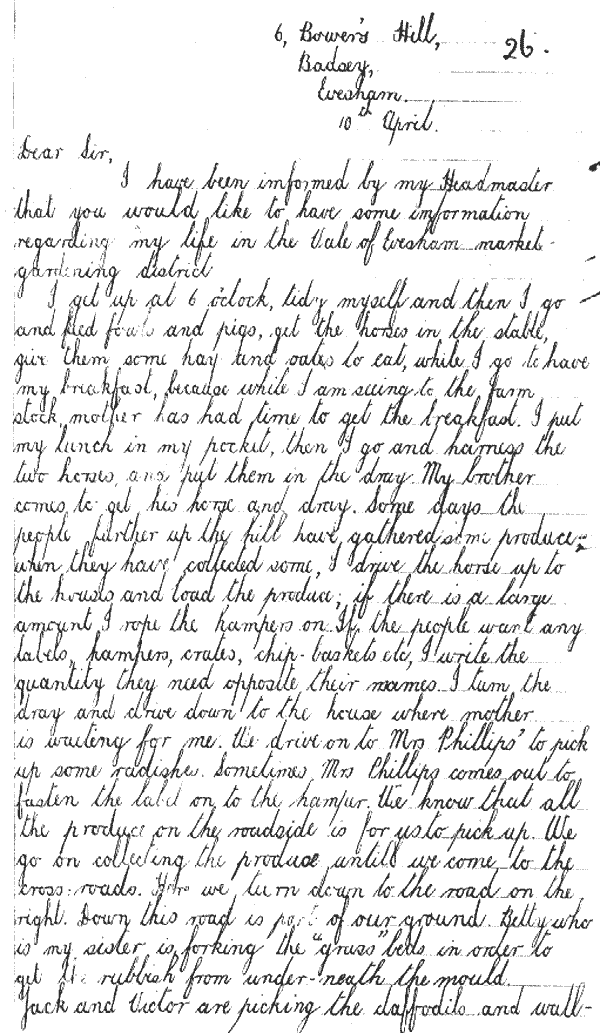 6, Bower's Hill,
26.
Badsey,
Evesham.
10th April.
Dear Sir,
I have been informed by my Headmaster
that you would like to have some information
regarding my life in the Vale of Evesham market-
gardening district
I get up at 6 o'clock, tidy myself and then I go
and feed fowls and pigs, get the horses in the stable,
give them some hay and oates to eat, while I go to have
my breakfast, because while I am seeing to the farm
stock, mother has had time to get the breakfast. I put
my lunch in my pocket, then I go and harness the
two horses, and put them in the dray. My brother
comes to get his horse and dray. Some days the
people further up the hill have gathered some produce,
when they have collected some, I drive the horse up to
the houses and load the produce; if there is a large
amount I rope the hampers on. If the people want any
labels, hampers, crates, chip-baskets etc, I write the
quantity they need opposite their names. I turn the
dray and drive down to the house where mother
is waiting for me. We drive on to Mrs Phillips' to pick
up some radishes. Sometimes Mrs Phillips comes out to
fasten the label on to the hamper. We know that all
the produce on the roadside is for us to pick up. We
go on collecting the produce until we come to the
cross-roads. Here we turn down to the road on the
right. Down this road is part of our ground. Betty who
is my sister is forking the "grass" beds in order to
get the rubbish from under-neath the mould.
Jack and Victor are picking the daffodils and wall-